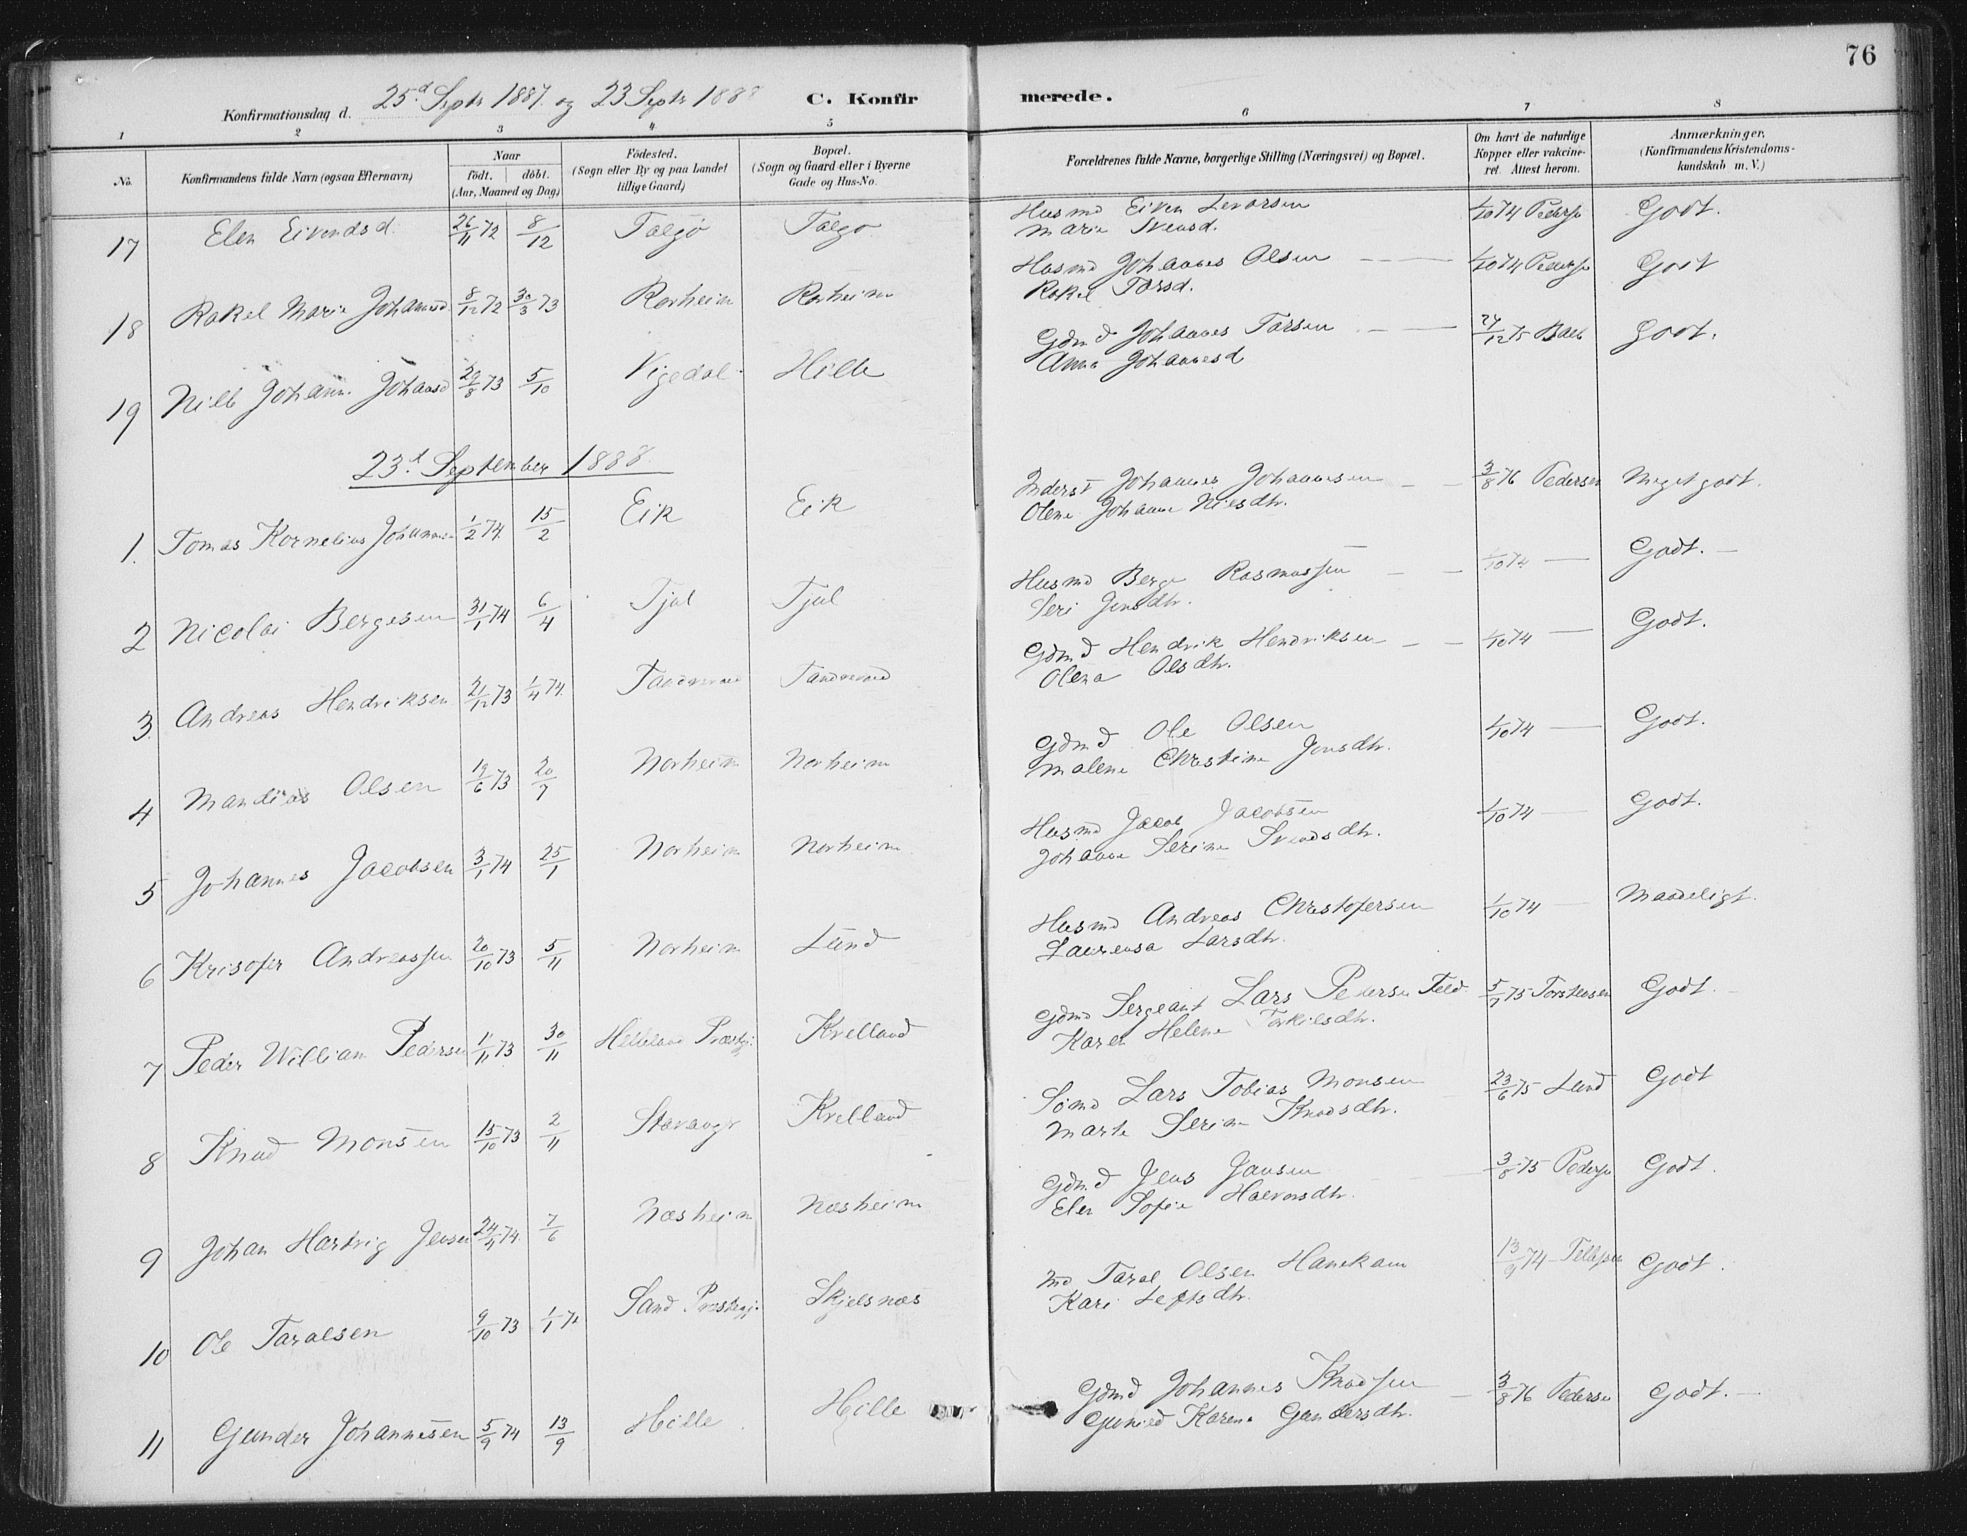 76
Konfirmationsdag d. 25d Septr 1887. og 23 Septr 1888 C. Konfirmerede.
1 2 3 4 5 6 7 8
No. Konfirmandens fulde Navn (ogsaa Efternavn) Naar födt. döbt. (Aar, Maaned og Dag) Födested. (Sogn eller By og paa Landet tillige Gaard) Bopæl. (Sogn og Gaard eller i Byerne Gade og Hus-No. Forældrenes fulde Navne, borgerlige Stilling (Næringsvei) og Bopæl. Om havt de naturlige Kopper eller vakcineret. Attest herom. Anmærkninger. (Konfirmandens Kristendomskundskab m. V.)
17 Elen Eivendsd. 26/11 72 8/12 Talgø Talgø Husmd Eiven Levorsen 1/10 74 Peders Godt.
Marie Svensd.
18 Rakel Marie Johannesd 8/12 72 30/3 73 Rorheim Rorheim Husmd Johannes Olsen 1/10 74 Peders Godt
Rakel Tarsd.
19 Nille Johanne Johansd 29/8 73 5/10 Vigedal Hille Gdmd Johannes Tarsen 24/12 75 Godt.
Anna Johannesd
23d September 1888.
1. Tomas Kornelius Johannesen 1/2 74. 15/2 Eik Eik Inderst Johannes Johannesen 3/8 76 Pedersen Meget godt.
Olene Johanne Nilsdtr.
2 Nicolai Bergesen 31/1 74 6/4 Tjul Tjul Husmd Berge Rasmussen 1/10 74 Godt.
Seri Jensdtr.
3. Andreas Hendriksen 21/12 73 1/4 74. Gdmd Hendrik Hendriksen 1/10 74 Godt.
Olena Olsdtr.
4 Mandias Olsen 19/6 73 20/7 Norheim Norheim Gdmd Ole Olsen 1/10 74 Godt.
Malene Christine Jensdtr.
5 Johannes Jacobsen 3/1 74 25/1 Norheim Norheim Husmd Jacob Jacobsen 1/10 74 Godt.
Johanne Serine Svendsdtr.
6 Krisofer Andreassen 20/10 73 5/11 Norheim Lund Husmd Andreas Christofersen 1/10 74 Maadeligt.
Laurensa Larsdtr.
7 Peder William Pedersen 11/11 73 30/11 Helleland Præstgj. Kvelland Gdmd Sergeant Lars Pedersen 5/9 75 Torstensen Godt.
Karen Helene Torkilsdtr.
8 Knud Monsen 15/10 73 2/11 Stavanger Kvelland Sømd Lars Tobias Monsen 23/6 75 Lund Godt
Marte Serine Knudsdtr.
9 Johan Hartvig Jensen 24/4 74. 7/6 Næsheim Næsheim Gdmd Jens Jansen 3/8 75 Peders Godt.
Elen Sofie Halvorsdtr.
10 Ole Taralsen 9/10 73 1/1 74 Sand Præstegj. Skjelsnæs Taral Olsen Hanekam 13/9 74 Godt.
Kari Leftsdtr.
11 Gunder Johannesen 5/9 74 13/9 Hille Hille Gdmd Johannes Knudsen 3/8 76 Pedersen Godt.
Gunild Karena Gundersdtr.